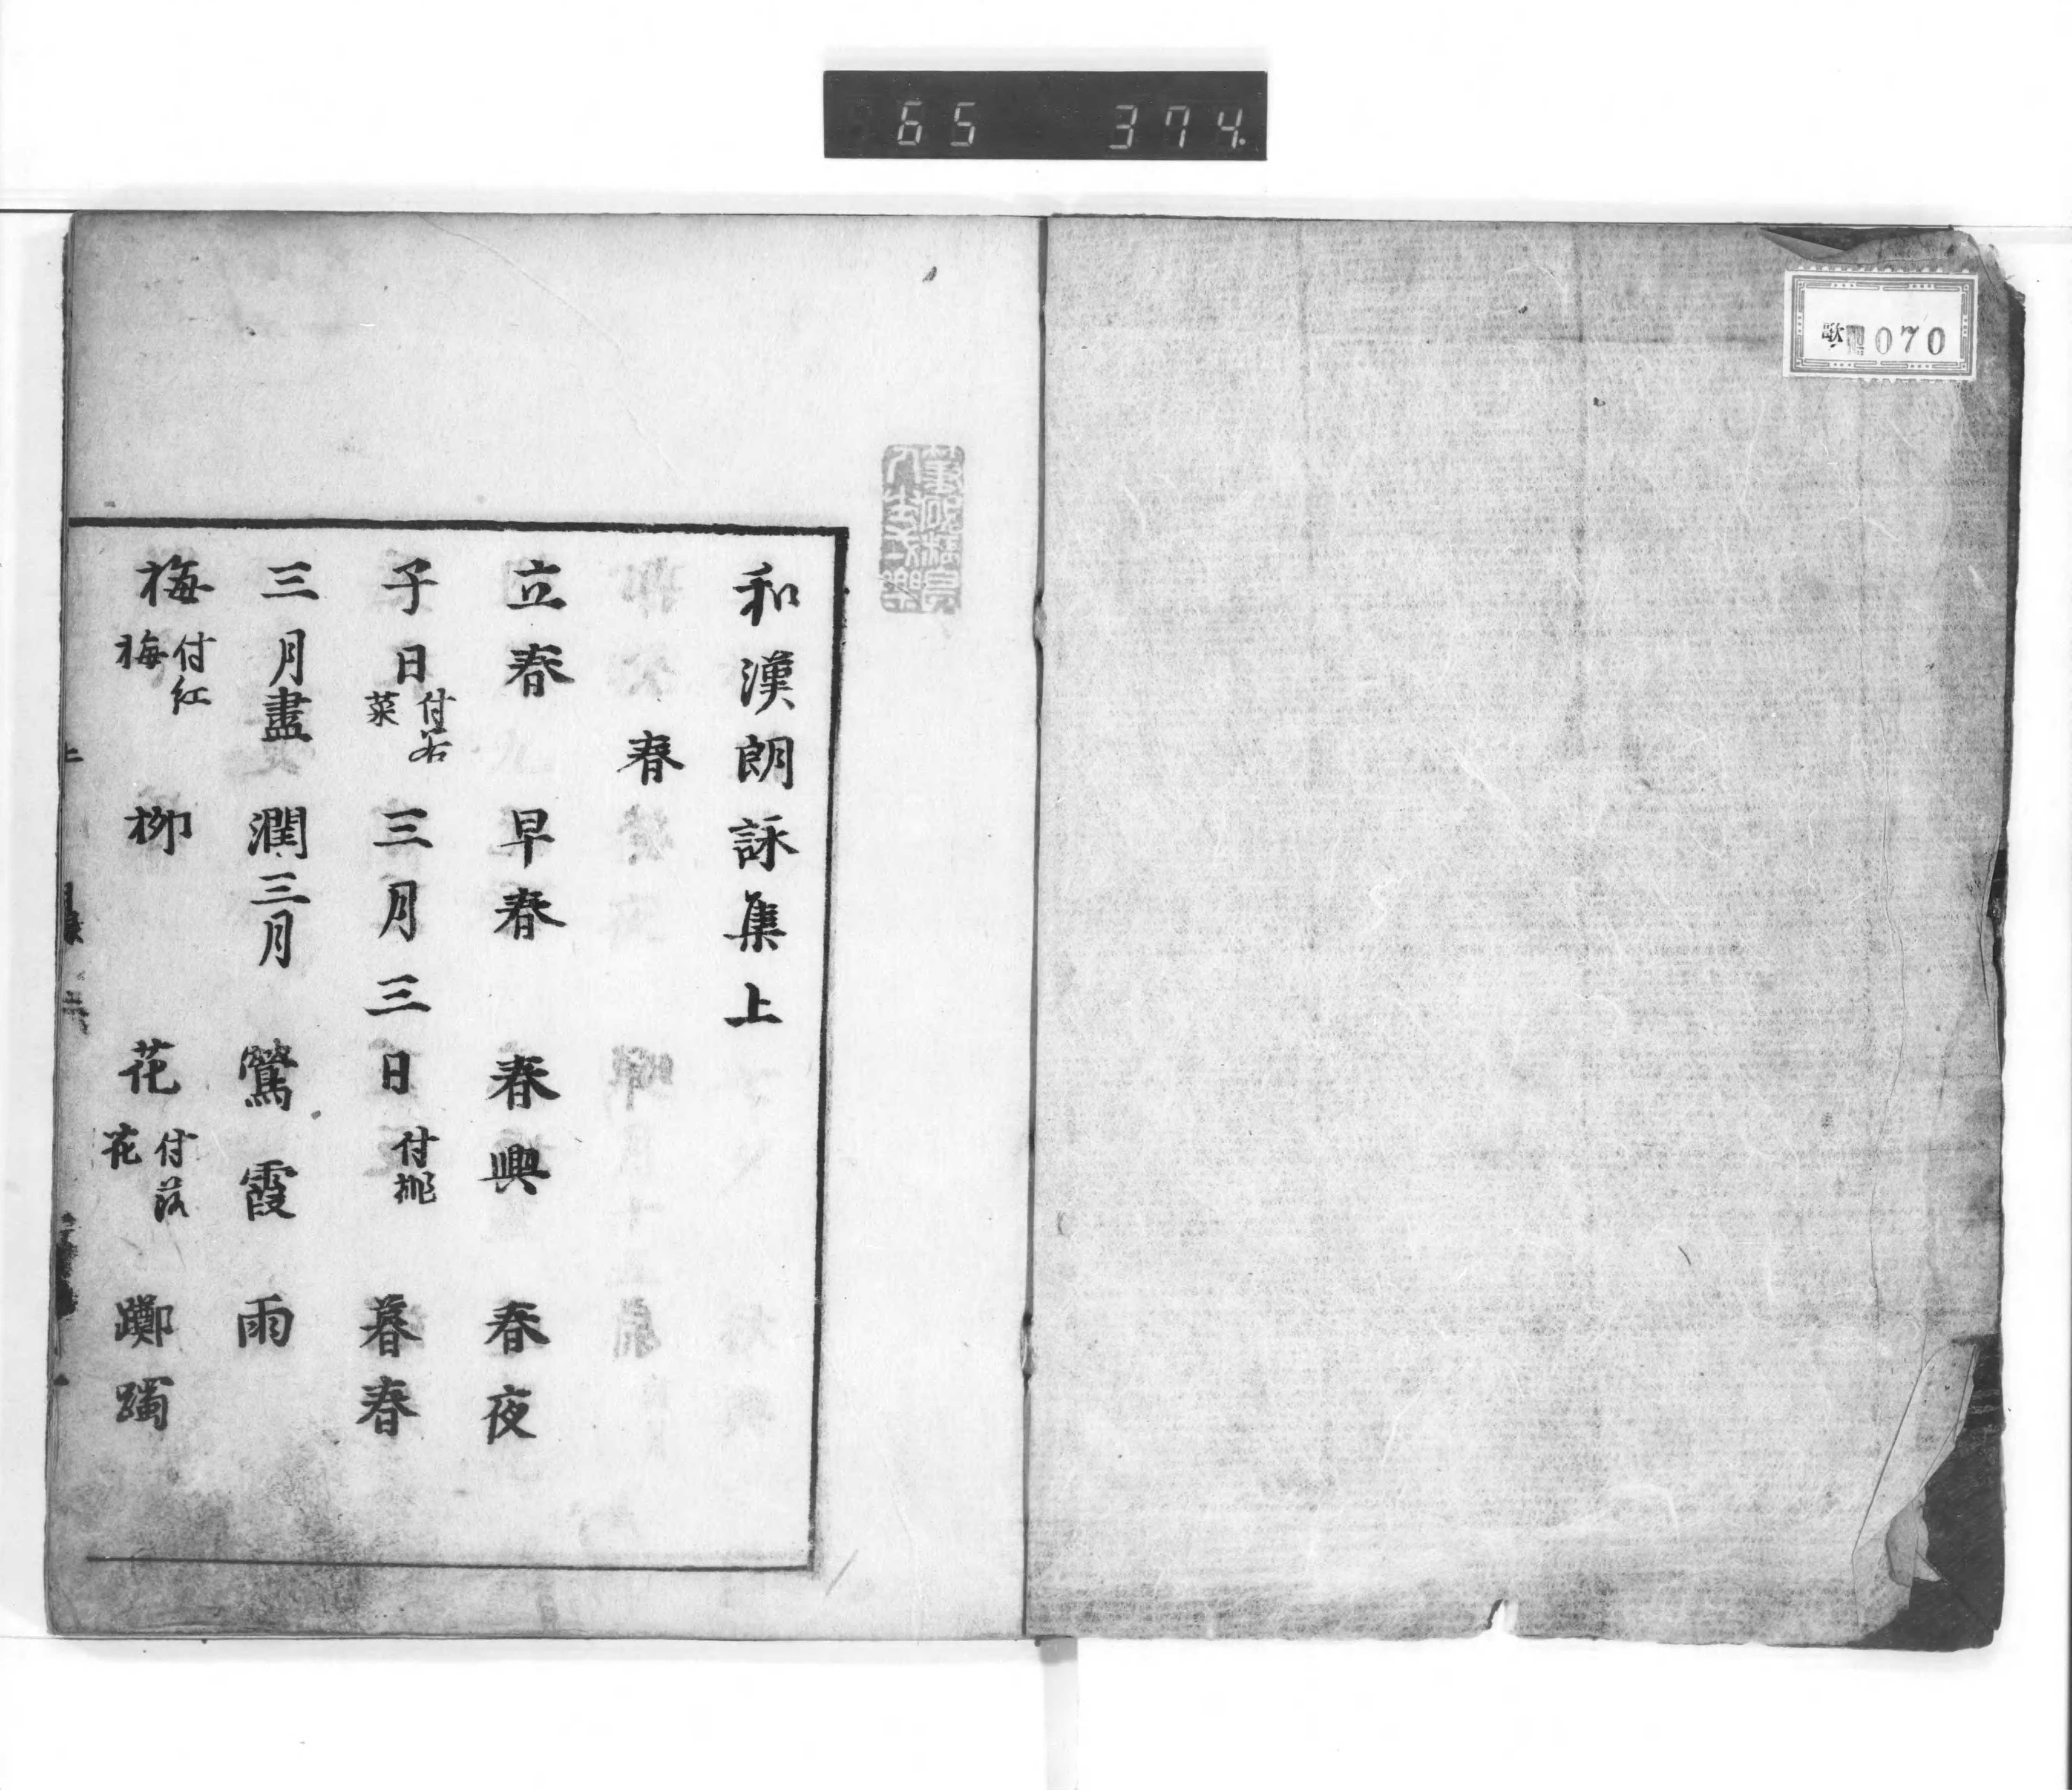 65 374
070
和漢朗詠集上
春
立春 早春 春興 春夜
子日付若菜 三月三日付桃 暮春
三月盡 潤三月 鶯 霞 雨
梅付紅梅 柳 花付落花 躑躅
上